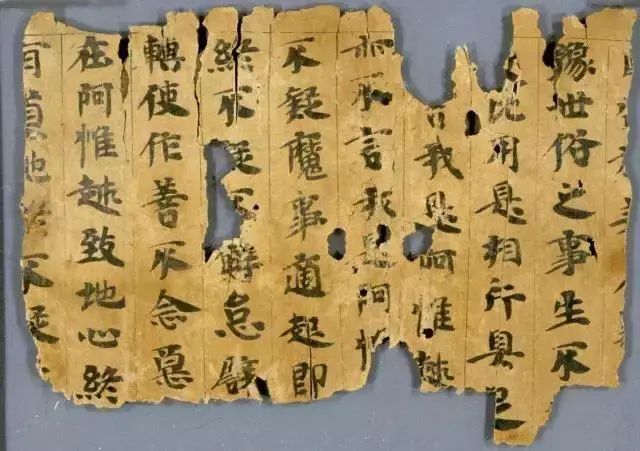 豫世俗之事生不
此用是相行具足
言我是阿惟越
亦不言我是阿惟
不疑魔事適起即
終不疑不懈怠
轉使作善不念惡
在阿惟越致地心終
有真地終不疑